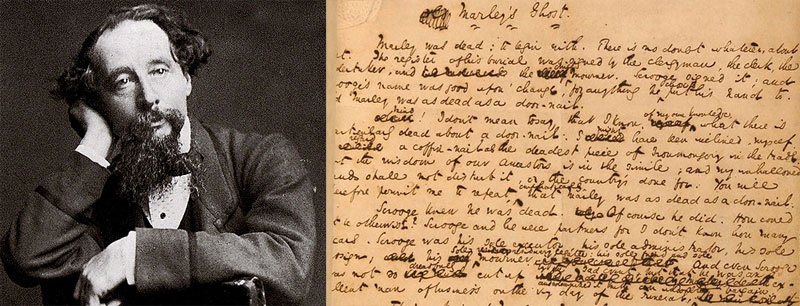 Marley's Ghost.
Marley was dead; to begin with. There is no doubt whatever, about
t. The register of his burial was signed by the clergyman, the clerk, the
dertaker, and the mourner. Scrooge signed it; and
ooge's name was good upon 'Change, for anything he put his hand to.
d Marley was as dead as a door-nail.
Mind! I don't mean to say, that I know, of my own knowledge, what there is
rticularly dead about a door-nail. I might have been inclined, myself,
a coffin-nail as the deadest piece of ironmongery in the trade
t the wisdom of our ancestors is in the simile; and my unhallowed
nds shall not disturb it, or the Country's done for. You will
refore permit me to repeat, emphatically, that Marley was as dead as a door-nail.
Scrooge knew he was dead. Of course he did. How could
t be otherwise? Scrooge and he were partners for I don't know how many
ears. Scrooge was his sole executor, his sole administrator, his sole
assign, his sole residuary legatee, his sole friend and sole
mourner. And even Scrooge
as not so cut up
llent man of business on the very day of the funeral,